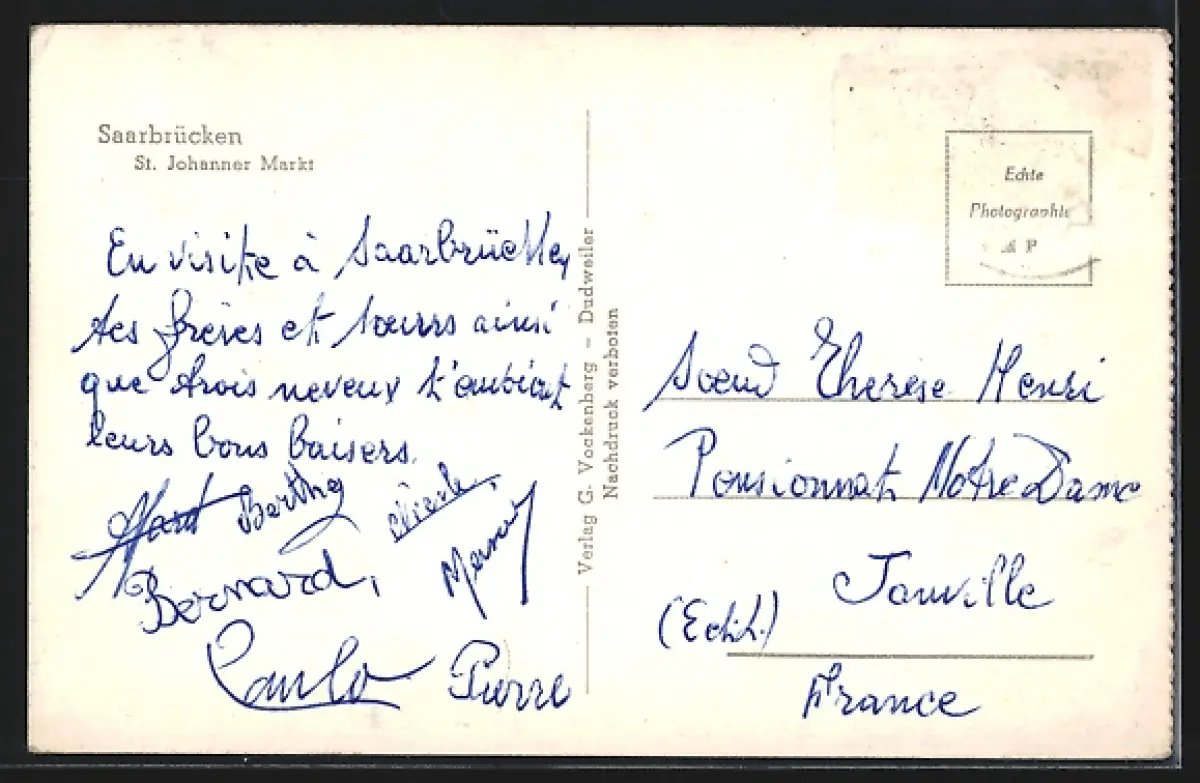 Saarbrücken
St. Johanner Markt
En visite à Saarbrücken
tes frères et soeurs ainsi
que trois neveux t'envoient
leurs bons baisers.
Berthe
Bernard,
Pierre
Verlag G. Vockenberg – Dudweiler
Nachdruck verboten
Echte
Photographie
Soeur Therèse Henri
Pensionnat Notre Dame
Janville
(E&L)
France